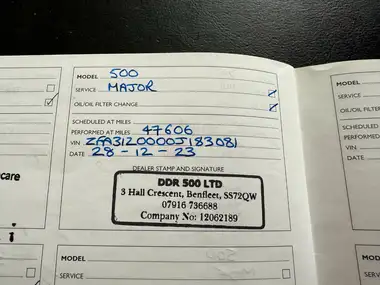 MODEL 500
SERVICE MAJOR
OIL/OIL FILTER CHANGE
SCHEDULED AT MILES
PERFORMED AT MILES 47606
VIN ZFA3120000J183081
DATE 28-12-23
DEALER STAMP AND SIGNATURE
DDR 500 LTD
3 Hall Crescent, Benfleet, SS72QW
07916 736688
Company No: 12062189
MODEL
SERVICE
MODEL
SERVICE
OIL/OIL FILTER
SCHEDULED AT
PERFORMED AT
VIN
DATE
care
MODEL
SERVICE